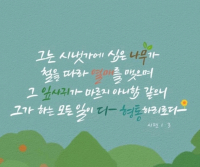 그는 시냇가에 심은 나무가
철을 따라 열매를 맺으며
그 잎사귀가 마르지 아니함 같으니
그가 하는 모든 일이 다 형통하리로다
시편 1:3